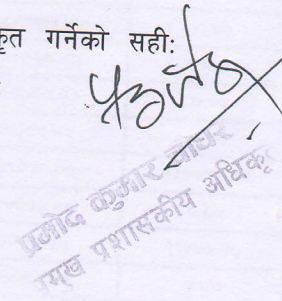 कृत गर्नेको सही:
प्रमोद कुमार
प्रमुख प्रशासकीय अधिकृत